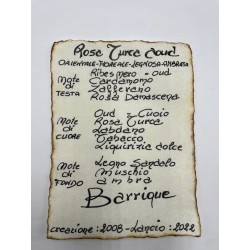 Rosa Turca Oud
ORIENTALE-FLOREALE-LEGNOSA-AMBRATA
Ribes nero - oud
Note Cardamomo
di Zafferano
TESTA Rosa Damascena
Oud - Cuoio
Note Rosa Turca
di Labdano
CUORE Tabacco
Liquirizia dolce
Note Legno Sandalo
di Muschio
FONDO ambra
Barrique
creazione: 2008 - Lancio: 2022